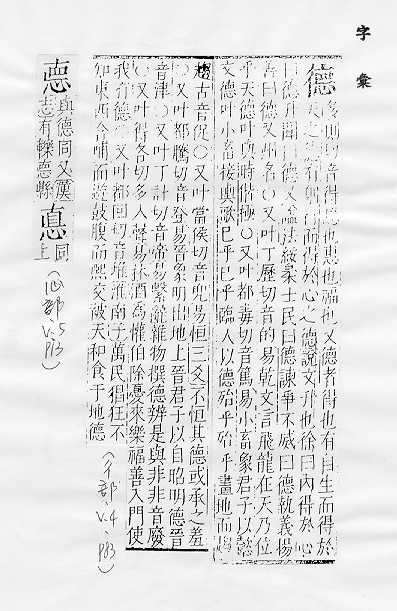 字彙
德 多則切音得德也惠也福也又德者得也有自生而得於
天之德有躬行而得於心之德說文升也徐曰內得於心
曰德升聞曰德又謚法綏柔士民曰德諫爭不威曰德執義揚
善曰德又州名○又叶丁歷切音的易乾文言飛龍在天乃位
乎天德叶與時偕極○又叶都毒切音篤易小畜象君子以懿
文德叶小畜接輿歌已乎已乎臨人以德殆乎殆乎畫地而趨
趨古音促○又叶當侯切音兜易恒三爻不恒其德或承之羞
○又叶都騰切音登易晉象明出地上晉君子以自昭明德晉
音津○又叶丁計切音帝易繫辭雜物撰德辨是與非非音廢
○又叶得各切多入聲易林酒為懽伯除憂來樂福善入門使
我有德○又叶都回切音堆淮南子萬民猖狂不
知東西含哺而遊鼓腹而熙交被天和食于地德
(彳部, V.4, P.13)
悳 與德同又漢
志有轢悳縣
惪 同
上
(心部, V.5 P.13)